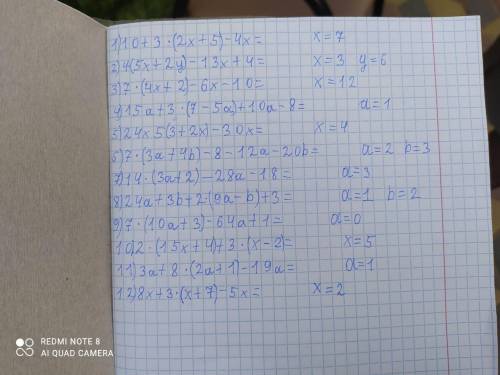 1) 10+3·(2x+5)-4x= x=7
2) 4(5x+2y)-13x+4= x=3 y=6
3) 7·(4x+2)-6x-10= x=12
4) 15a+3·(7-5a)+10a-8= a=1
5) 24x5(3+2x)-30x= x=4
6) 7·(3a+4b)-8-12a-20b= a=2 b=3
7) 14·(3a+2)-28a-18= a=3
8) 24a+3b+2·(9a-b)+3= a=1 b=2
9) 7·(10a+3)-64a+1= a=0
10) 2·(15x+4)+3·(x-2)= x=5
11) 3a+8·(2a+1)-19a= a=1
12) 8x+3·(x+7)-5x= x=2
REDMI NOTE 8
AI QUAD CAMERA